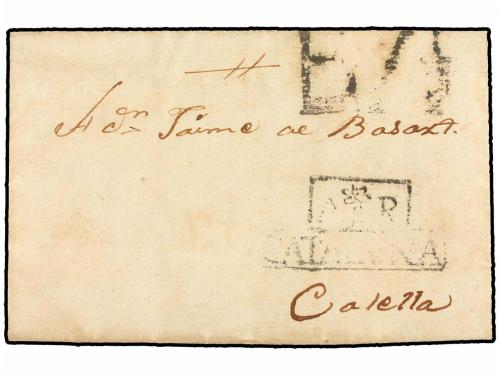 A dn Jaime de Basart.
A R
CATALUÑA
Calella